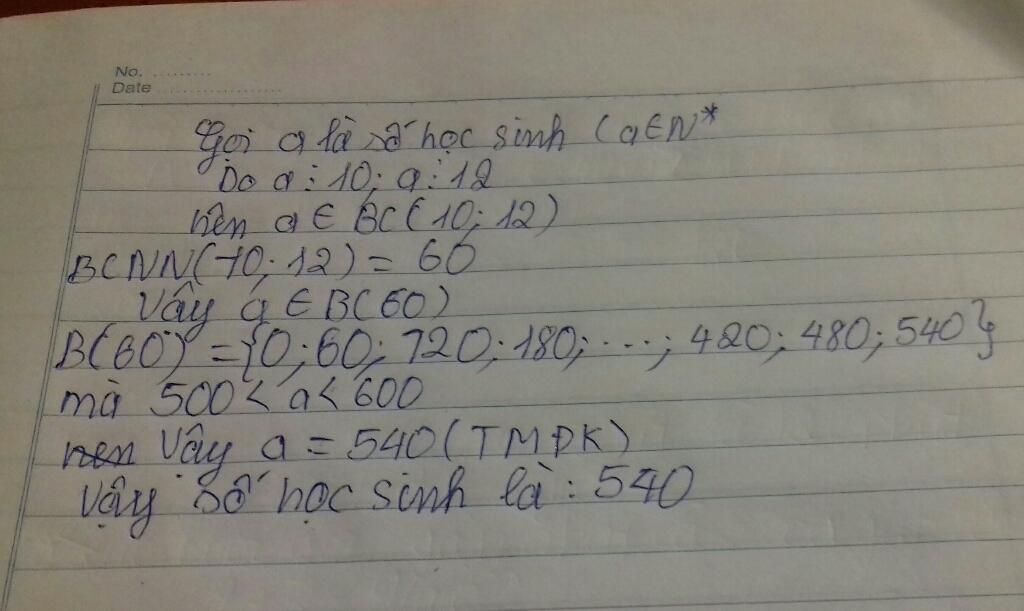 No. ..........
Date ....................
Gọi a là số học sinh (a∈N*
Do a⋮10; a⋮12
nên a ∈ BC(10; 12)
BCNN(10; 12) = 60
Vậy a ∈ B(60)
B(60) = {0; 60; 120; 180; ...; 420; 480; 540}
mà 500 < a < 600
nên Vậy a = 540 (TMĐK)
Vậy số học sinh là: 540